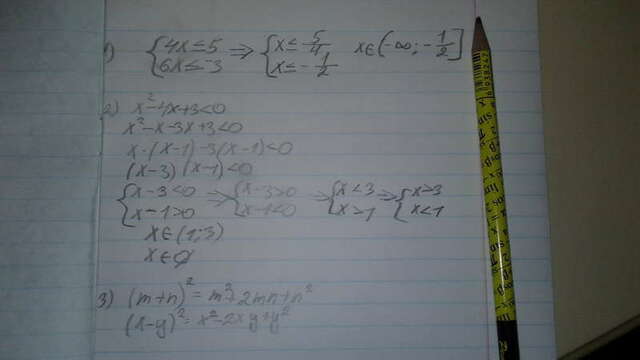 1) {4x≤5 ⇒ {x≤5/4 x∈(-∞;-1/2]
{6x≤-3 {x≤-1/2
2) x²-4x+3<0
x²-x-3x+3<0
x·(x-1)-3(x-1)<0
(x-3)(x-1)<0
{x-3<0 ⇒ {x-3>0 ⇒ {x<3 ⇒ {x>3
{x-1>0 {x-1<0 {x>1 {x<1
x∈(1;3)
x∈∅
3) (m+n)²=m²+2mn+n²
(x-y)²=x²-2xy+y²